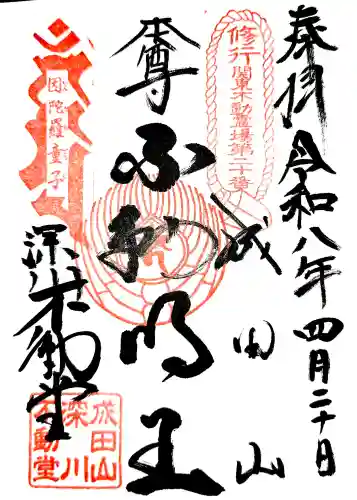 奉拝 令和八年四月二十日
修行 関東不動霊場第二十番
成田山
本尊不動明王
因陀羅童子
深川不動堂
成田山
深川
不動堂